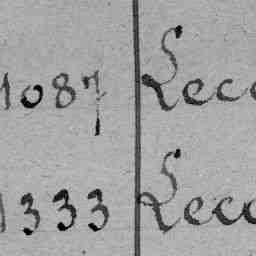 1087 Leco
1333 Leco